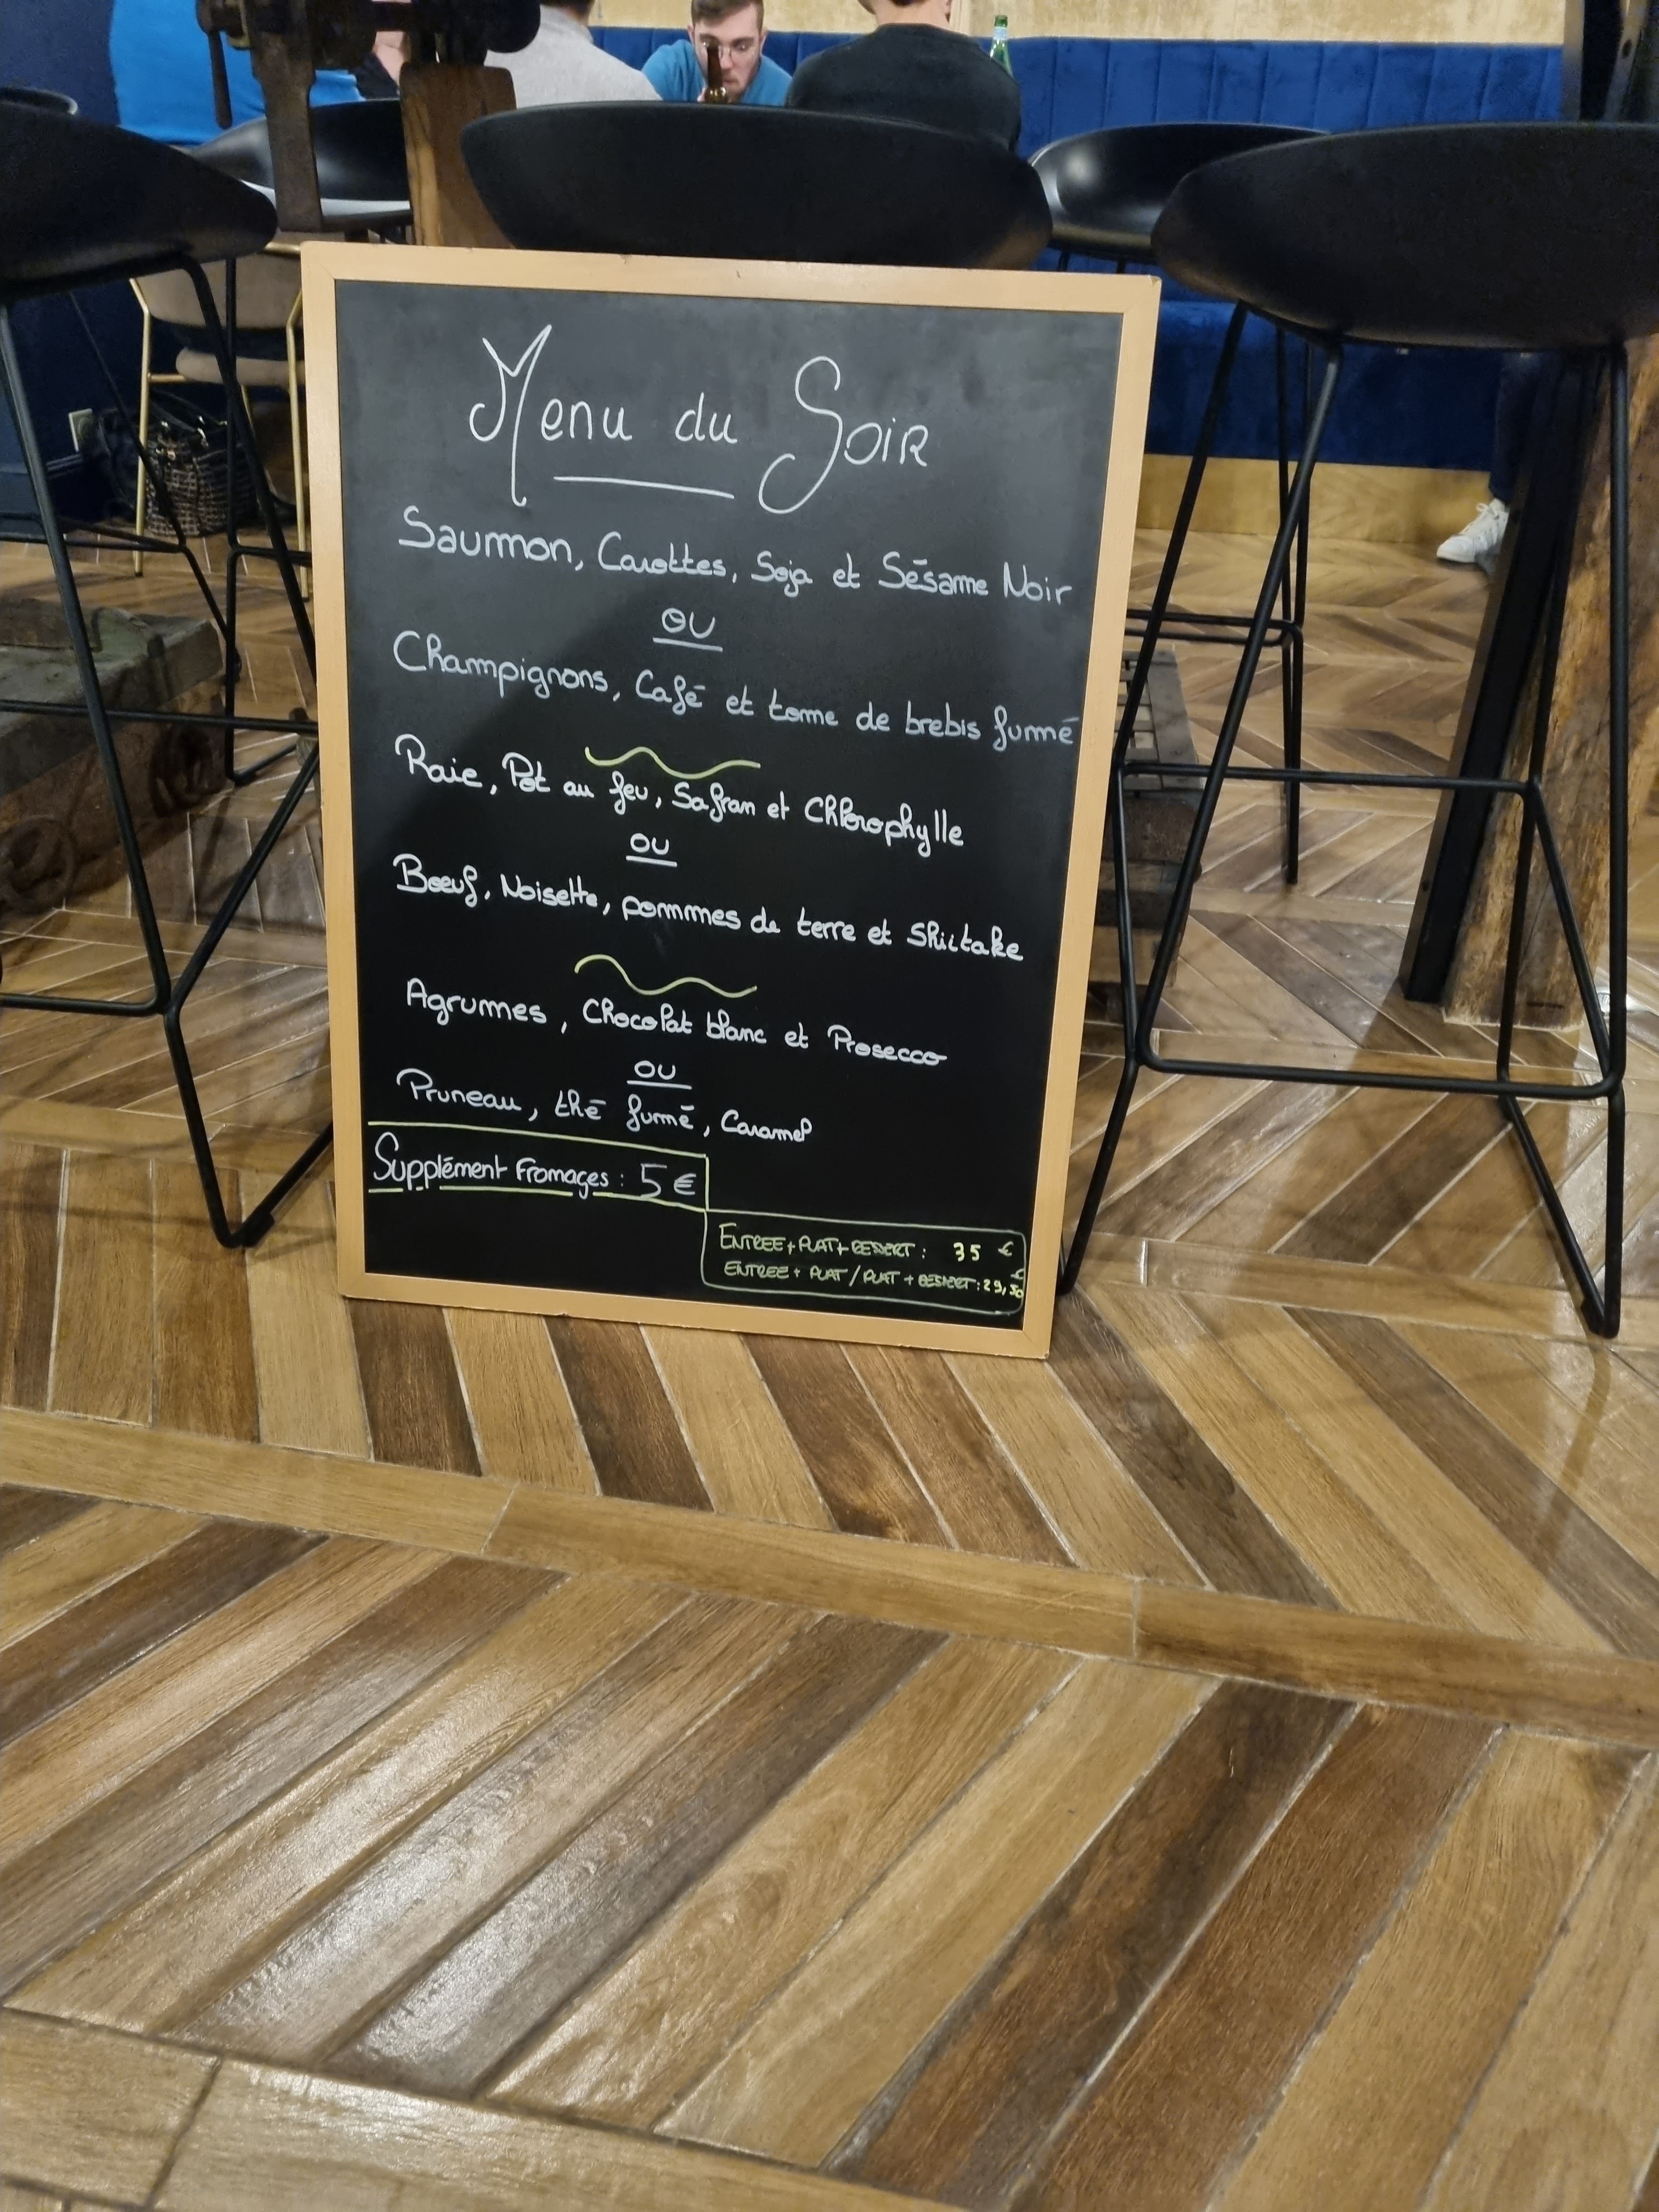 Menu du Soir
Saumon, Carottes, Soja et Sésame Noir
OU
Champignons, Café et tome de brebis fumé
Raie, Pot au feu, Safran et Chlorophylle
OU
Bœuf, Noisette, pommes de terre et Shiitake
Agrumes, Chocolat blanc et Prosecco
OU
Pruneau, thé fumé, Caramel
Supplément Fromages : 5 €
ENTREE + PLAT + DESSERT : 35 €
ENTREE + PLAT / PLAT + DESSERT : 29,50 €